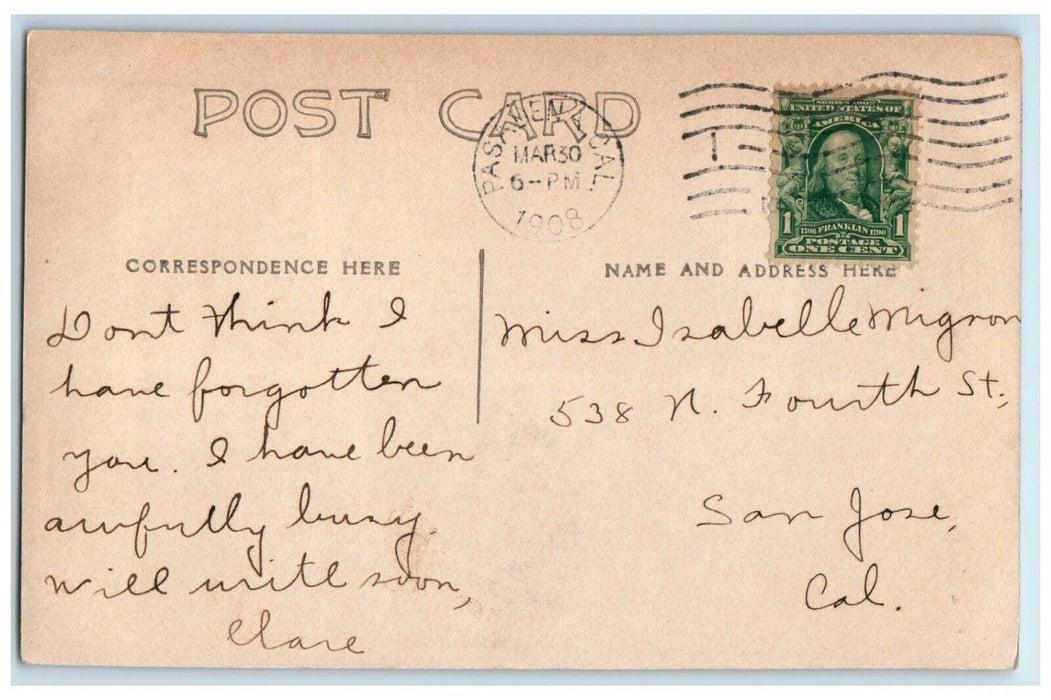 POST CARD
PASADENA, CAL.
MAR 30
6-PM
1908
SERIES 1902
UNITED STATES OF
AMERICA
1 1
1706 FRANKLIN 1790
POSTAGE
ONE CENT
CORRESPONDENCE HERE
NAME AND ADDRESS HERE
Dont think I
have forgotten
you. I have been
awfully busy.
will write soon,
Clare
Miss Isabelle Mignon
538 N. Fourth St.,
San Jose,
Cal.